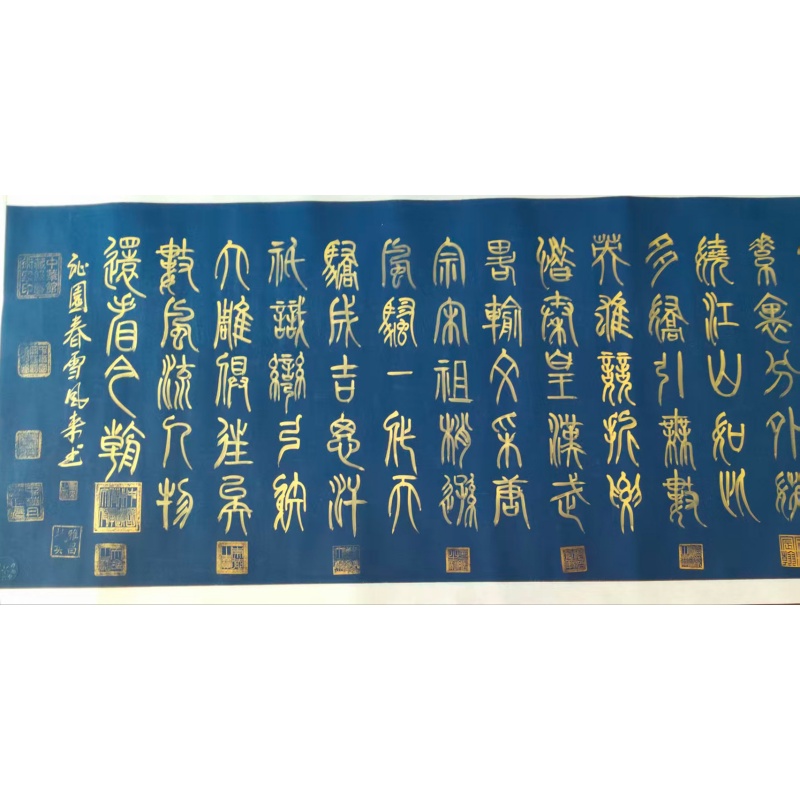 素裹分外妖
嬈江山如此
多嬌引無數
英雄競折腰
惜秦皇漢武
畧輸文采唐
宗宋祖稍遜
風騷一代天
驕成吉思汗
祇識彎弓射
大雕俱往矣
數風流人物
還看今朝
沁園春雪风来书